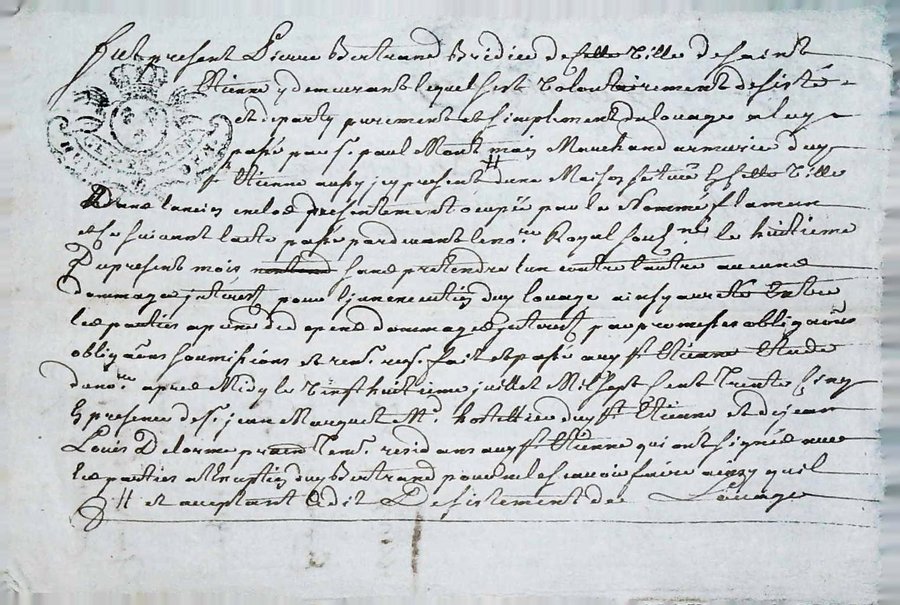 fut present Pierre Bertrand Bridier de cette Ville de Saint
Etienne y demeurant lequel s'est Volontairement desisté
et departy purement et simplement du louage a luy
passé par Sr. paul Mont mais Marchand armurier dudt
St Etienne aussy icy present // d'une Maison scituée En cette Ville
Dans lancien enclos presentement ocupée par le Nommé flamen
et ce suivant lacte passé pardevant le no.re Royal sousne. le huitieme
Du present mois sans pretendre l'un contre l'autre aucuns
dommages jnterest pour l'jnexecution dudt louage ainsy arreté Entre
les parties a peine de depens dommages jnterests par promesses obliga͠ons
obliga͠ons soumissions et ren͠. res. fait et passé audt St Etienne Etude
du no.re apres Midy le Vingt huitieme juillet Mil sept Cent Trente Cinq
En presence de Sr. jean Marquet Me. hottellier dudt St Etienne et de jean
Louis Delorme pratn. tem. residans audt St Etienne qui ont signés avec
les parties a l'exception dudt Bertrand pour ne le scavoir faire ainsy quil
// et aceptant Ledit Desistement de Louage